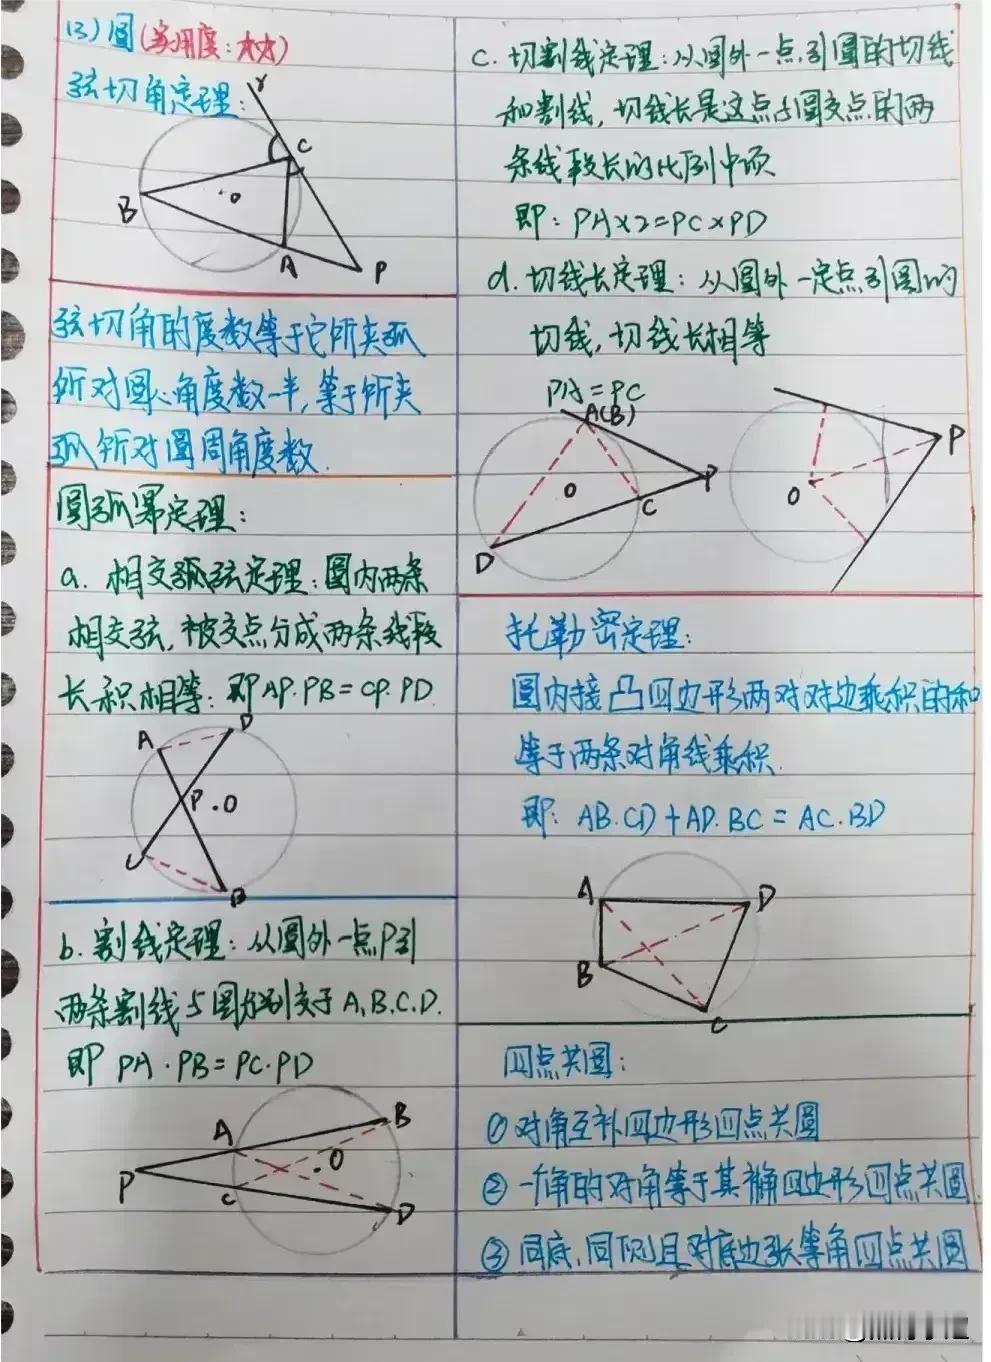 (3) 圆(实用度:大大)
弦切角定理:
Y
C
B
O
A
P
弦切角的度数等于它所夹弧
所对圆心角度数一半,等于所夹
弧所对圆周角度数.
圆弧幂定理:
a. 相交弧弦定理:圆内两条
相交弦,被交点分成两条线段
长积相等:即AP·PB=CP·PD
A
D
P
O
C
B
b. 割线定理:从圆外一点P引
两条割线与圆分别交于A,B.C.D.
即 PA·PB=PC·PD
A
B
P
O
C
D
C. 切割线定理:从圆外一点引圆的切线
和割线,切线长是这点与圆交点的两
条线段长的比例中项
即:PA×2=PC×PD
d. 切线长定理:从圆外一定点引圆的
切线,切线长相等
PA=PC
A(B)
P
O
C
D
P
O
托勒密定理:
圆内接凸四边形两对对边乘积的和
等于两条对角线乘积.
即:AB·CD+AD·BC=AC·BD
A
D
B
C
四点共圆:
①对角互补四边形四点共圆
②一角的对角等于其补角四边形四点共圆
③同底,同侧且对底边张等角四点共圆